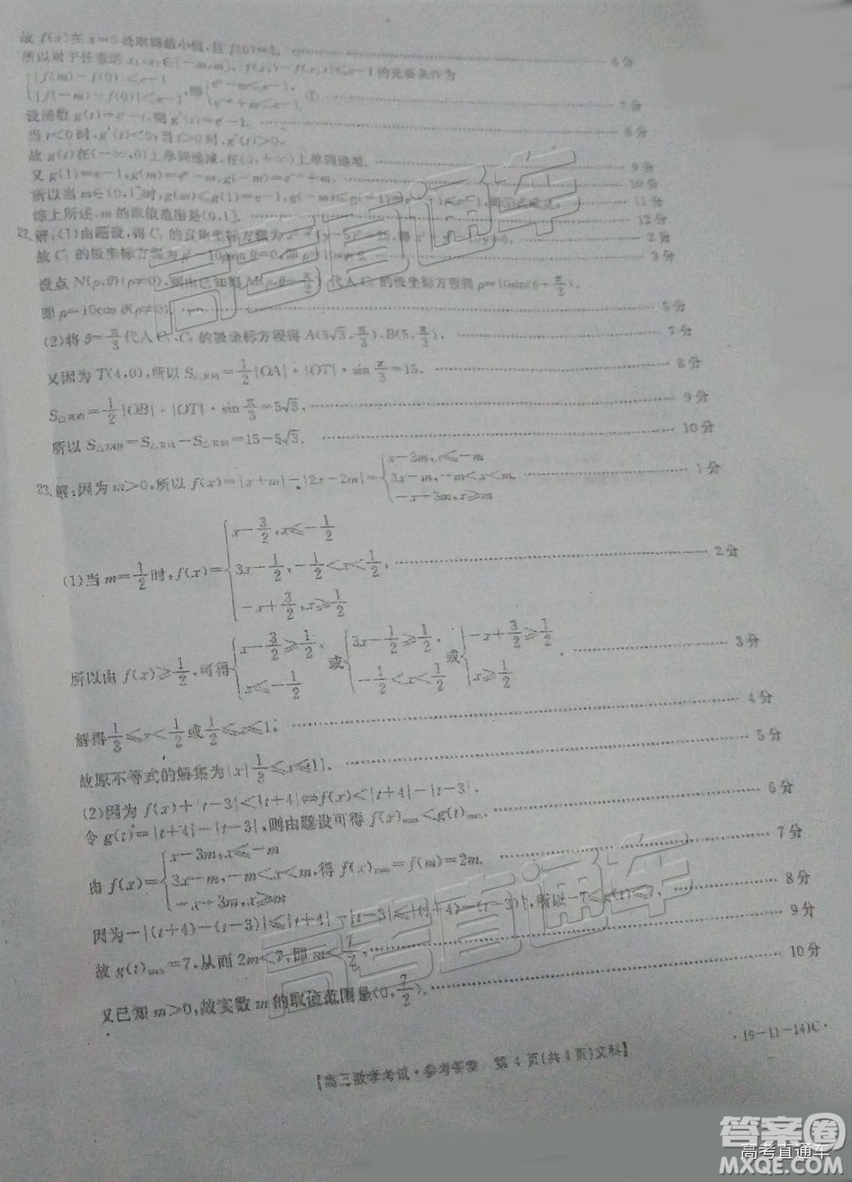 故 f(x)在 x=0 处取得最小值,且 f(0)=1. 6分
所以对于任意的 x₁,x₂∈[-m,m],|f(x₁)-f(x₂)|≤e-1的充要条件为
{|f(m)-f(0)|≤e-1 |f(-m)-f(0)|≤e-1,即{e^m-m≤e-1, e^{-m}+m≤e-1. ① 7分
设函数 g(t)=e^t-t,则 g'(t)=e^t-1. 8分
当 t<0时,g'(t)<0;当 t>0时,g'(t)>0.
故 g(t)在(-∞,0)上单调递减,在(0,+∞)上单调递增. 9分
又 g(1)=e-1,g(m)=e^m-m,g(-m)=e^{-m}+m, 10分
所以当 m∈(0,1]时,g(m)≤g(1)=e-1,g(-m)≤ 11分
综上所述,m的取值范围是(0,1]. 12分
22.解:(1)由题设,得 C₁的直角坐标方程为 2分
故 C₁的极坐标方程为 3分
设点 N(ρ,θ)(ρ≠0),则由已知得 M(ρ,θ+π/2),代入 C₁的极坐标方程得 ρ=10sin(θ+π/2),
即 ρ=10cos θ(ρ≠0). 5分
(2)将 θ=π/3代入 C₁,C₂的极坐标方程得 A(5√3,π/3),B(5,π/3). 7分
又因为 T(4,0),所以 S△TOA=1/2|OA|·|OT|·sin π/3=15, 8分
S△TOB=1/2|OB|·|OT|·sin π/3=5√3, 9分
所以 S△TAB=S△TOA-S△TOB=15-5√3. 10分
23.解:因为 m>0,所以 f(x)=|x+m|-|2x-2m|={x-3m,x≤-m 3x-m,-m<x<m, -x+3m,x≥m 1分
(1)当 m=1/2时,f(x)={x-3/2,x≤-1/2 3x-1/2,-1/2<x<1/2, -x+3/2,x≥1/2 2分
所以由 f(x)≥1/2,可得{x-3/2≥1/2, x≤-1/2 或{3x-1/2≥1/2, -1/2<x<1/2 或{-x+3/2≥1/2 x≥1/2. 3分
解得1/3≤x<1/2或1/2≤x≤1; 4分
故原不等式的解集为{x|1/3≤x≤1}. 5分
(2)因为 f(x)+|t-3|<|t+4|⇔f(x)<|t+4|-|t-3|, 6分
令 g(t)=|t+4|-|t-3|,则由题设可得 f(x)max<g(t)max.
由 f(x)={x-3m,x≤-m 3x-m,-m<x<m, -x+3m,x≥m 得 f(x)max=f(m)=2m. 7分
因为-|(t+4)-(t-3)|≤|t+4|-|t-3|≤|(t+4)-(t-3)|,所以-7≤g(t)≤7. 8分
故 g(t)max=7,从而 2m<7,即 m<7/2, 9分
又已知 m>0,故实数 m的取值范围是(0,7/2). 10分
【高三数学考试·参考答案 第4页(共4页)文科】 ·19-11-141C·
高考直通车
高考直通车
答案圈
高考直通车
MXQE.COM